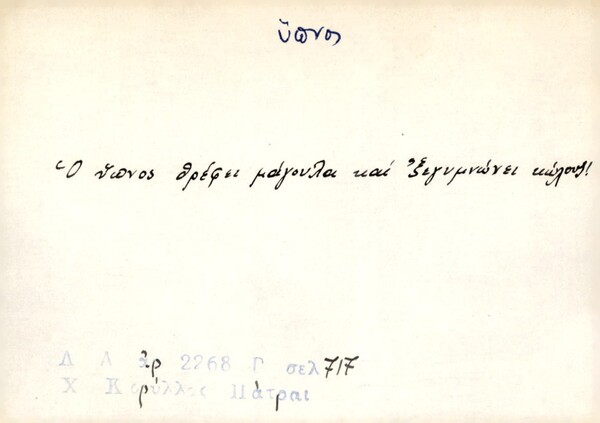 ὕπνος
Ὁ ὕπνος θρέφει μάγουλα καί ξεγυμνώνει κώλους!
Λ Α ἀρ 2268 Γ σελ 717
Χ Κορύλλος Πάτραι